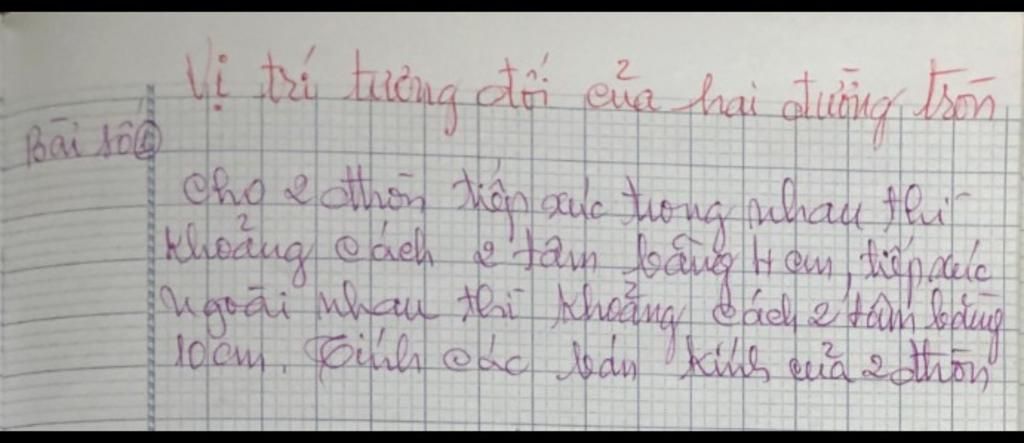 Vị trí tương đối của hai đường tròn
Bài số
Cho 2 đtròn tiếp xúc trong nhau thì
khoảng cách 2 tâm bằng 4 cm, tiếp xúc
ngoài nhau thì khoảng cách 2 tâm bằng
10cm. Tính các bán kính của 2 đtròn